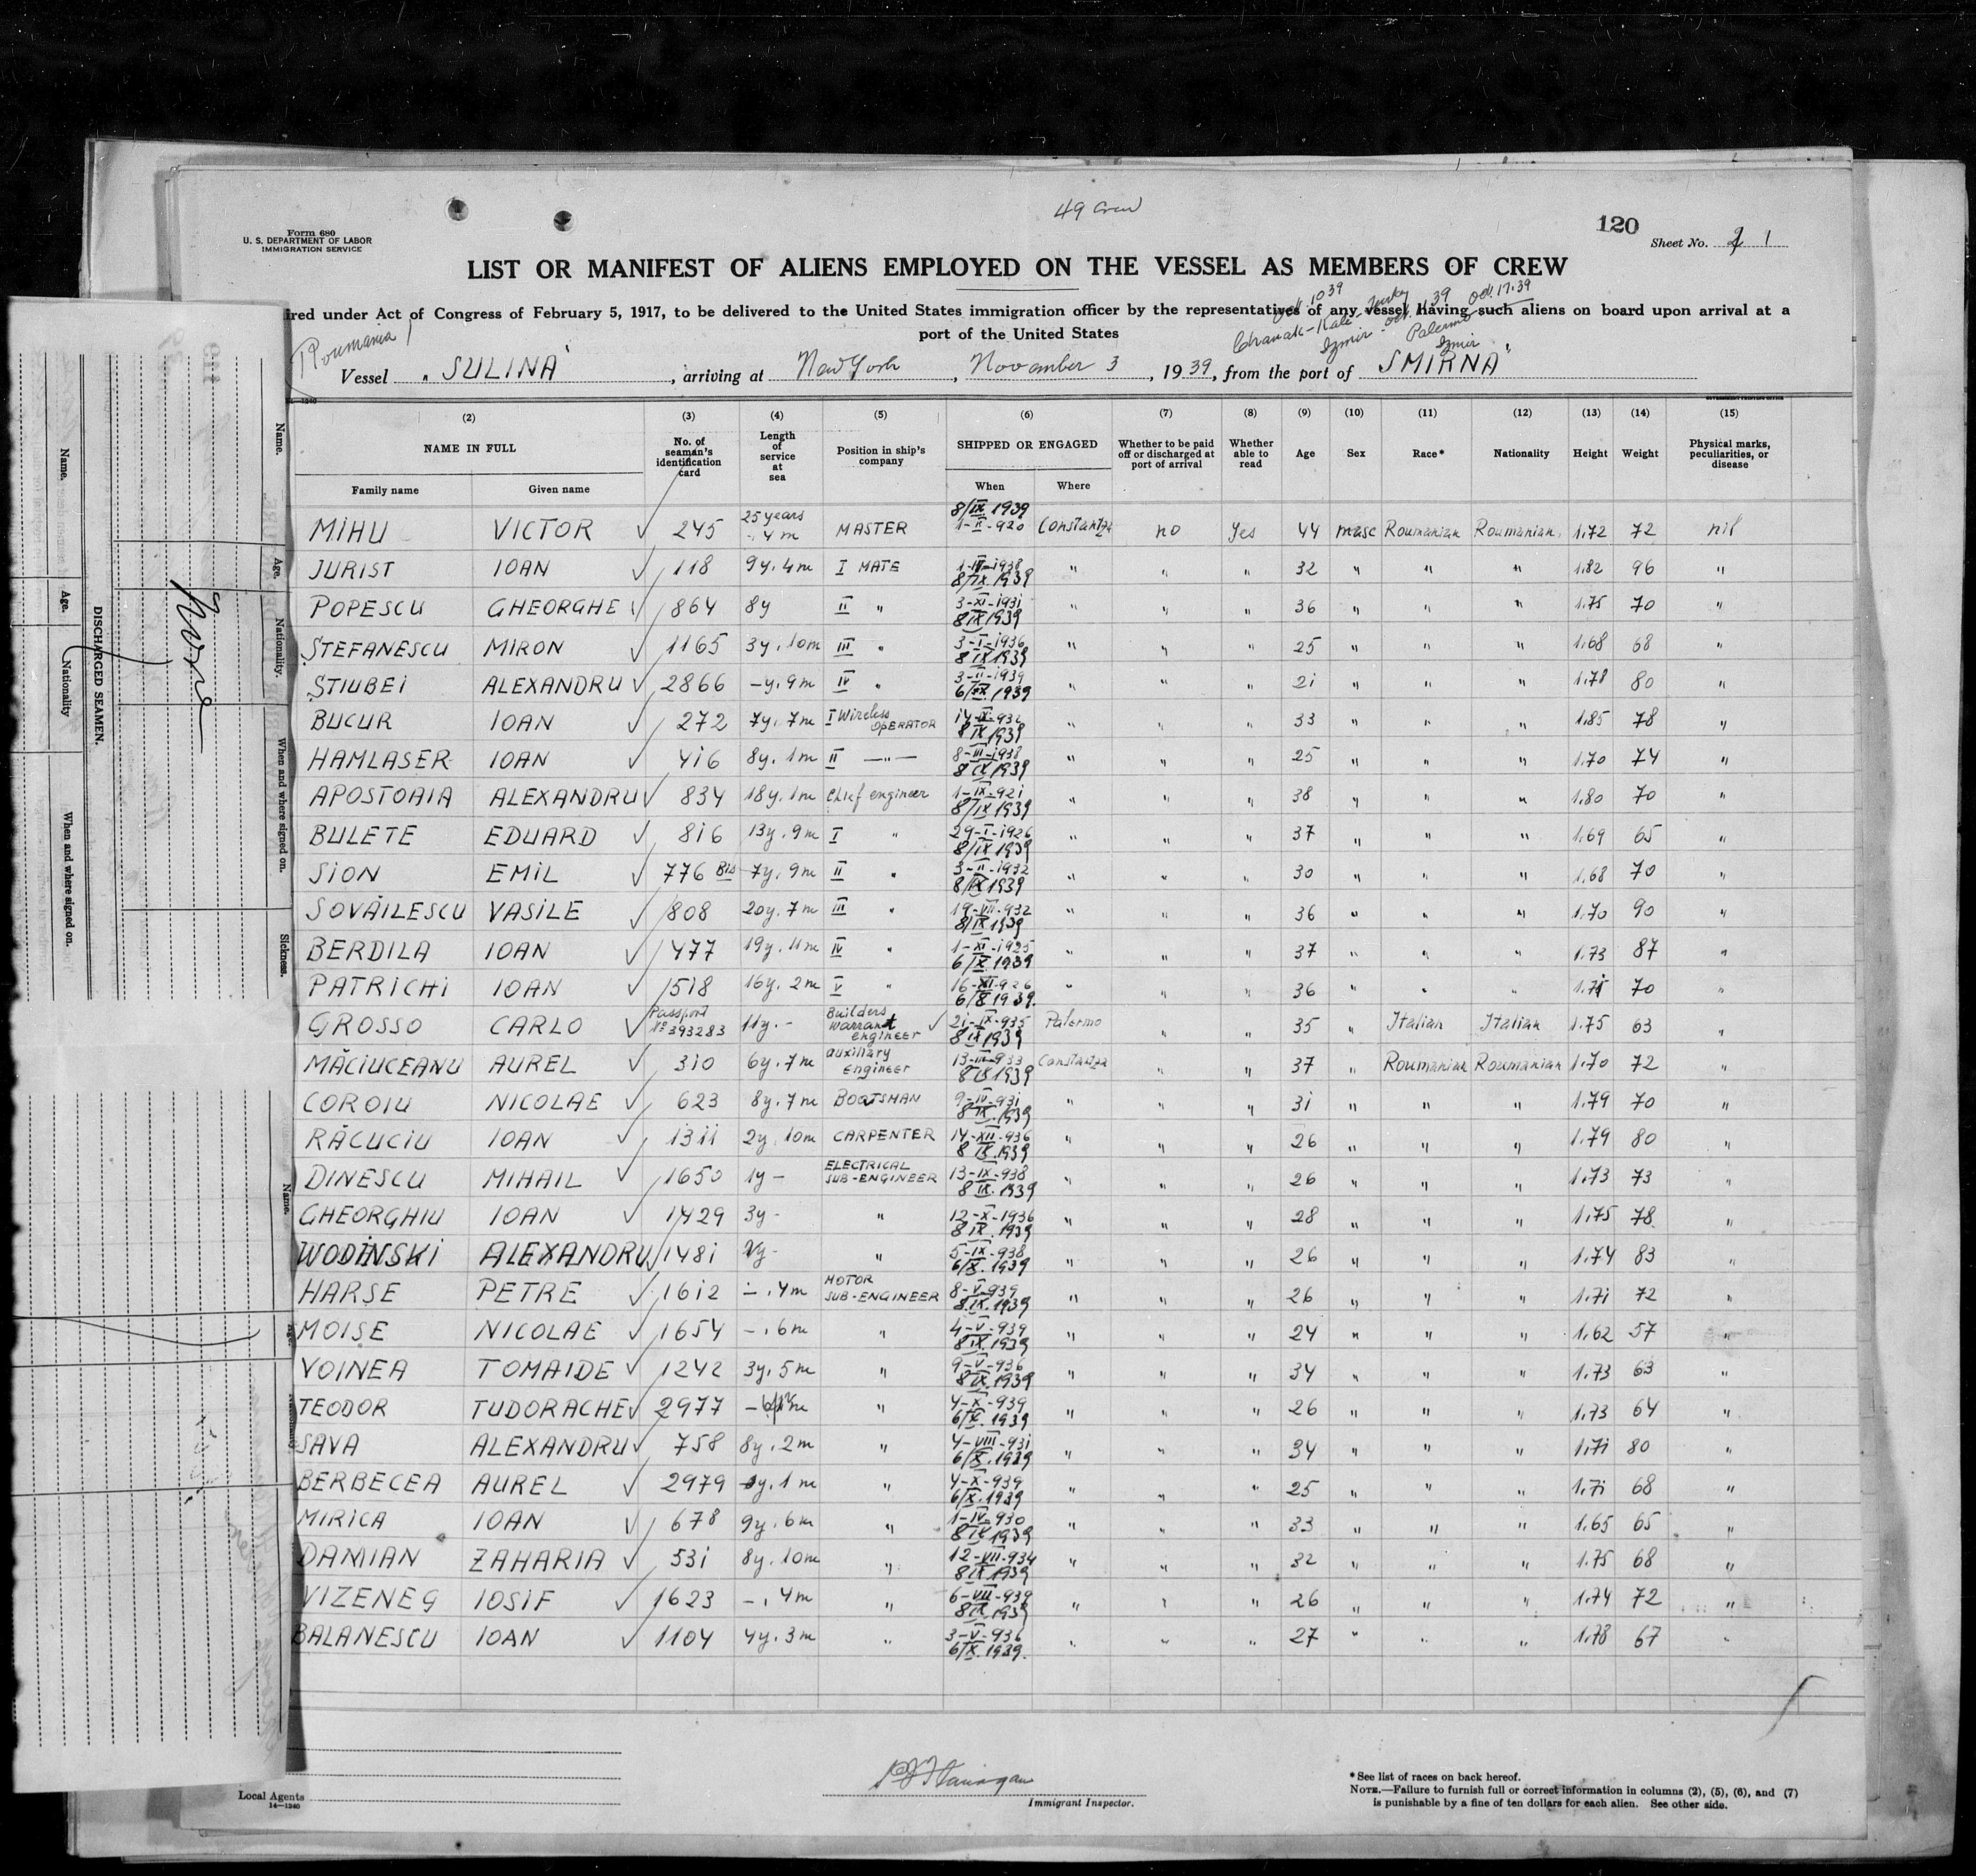 49 Crew
120
Form 680
U. S. DEPARTMENT OF LABOR
IMMIGRATION SERVICE
Sheet No. 1
LIST OR MANIFEST OF ALIENS EMPLOYED ON THE VESSEL AS MEMBERS OF CREW
ired under Act of Congress of February 5, 1917, to be delivered to the United States immigration officer by the representatives of any vessel having such aliens on board upon arrival at a
port of the United States
Oct. 10 39
Chanak-Kale Turkey
Izmir Oct. 11 39
Palermo Oct. 17. 39
Izmir
Roumania
Vessel „ SULINA" , arriving at New York , November 3 , 1939, from the port of SMIRNA"
(2) (3) (4) (5) (6) (7) (8) (9) (10) (11) (12) (13) (14) (15)
NAME IN FULL No. of seaman's identification card Length of service at sea Position in ship's company SHIPPED OR ENGAGED Whether to be paid off or discharged at port of arrival Whether able to read Age Sex Race* Nationality Height Weight Physical marks, peculiarities, or disease
Family name Given name When Where
MIHU VICTOR ✓ 245 25 years 4 m MASTER 8/IX 1939 1-II-920 Constantza no Yes 44 masc Roumanian Roumanian 1.72 72 nil
JURIST IOAN ✓ 118 9y. 4m I MATE 8/IX.1939 " " " 32 " " " 1.82 96 "
POPESCU GHEORGHE ✓ 864 8y II " 3-XI-1931 8 IX 1939 " " " 36 " " " 1.75 70 "
ŞTEFANESCU MIRON ✓ 1165 3y. 10m III " 3-I-1936 8 IX 1939 " " " 25 " " " 1.68 68 "
ŞTIUBEI ALEXANDRU ✓ 2866 -y. 9m IV " 3-II-1939 6/IX. 1939 " " " 21 " " " 1.78 80 "
BUCUR IOAN ✓ 272 7y. 7m I Wireless OPERATOR 8 IX 1939 " " " 33 " " " 1.85 78 "
HAMLASER IOAN ✓ 416 8y. 1m II —"— 8-III-1938 8 IX 1939 " " " 25 " " " 1.70 74 "
APOSTOAIA ALEXANDRU ✓ 834 18y. 1m Chief engineer 1-IX-921 8/IX 1939 " " " 38 " " " 1.80 70 "
BULETE EDUARD ✓ 816 13y. 9m I " 29-I-1926 8/IX 1939 " " " 37 " " " 1.69 65 "
SION EMIL ✓ 776 Bis 7y. 9m II " 3-II-1932 8/IX 1939 " " " 30 " " " 1.68 70 "
SOVĂILESCU VASILE ✓ 808 20y. 7m III " 19-VII-932 8/IX 1939 " " " 36 " " " 1.70 90 "
BERDILA IOAN ✓ 477 19y. 11m IV " 1-XI-1925 6/X. 1939 " " " 37 " " " 1.73 87 "
PATRICHI IOAN ✓ 1518 16y. 2m V " 16-XI-926 6/X 1939. " " " 36 " " " 70 "
GROSSO CARLO ✓ Passport No 393283 11y.- Builders warrant engineer ✓ 21-IX-935 8 IX 1939 Palermo " " 35 " Italian Italian 1.75 63 "
MĂCIUCEANU AUREL ✓ 310 6y. 7m auxiliary engineer 13-III-933 8 IX 1939 Constantza " " 37 " Roumanian Roumanian 1.70 72 "
COROIU NICOLAE ✓ 623 8y. 7m BOATSMAN 9-IV-931 8 IX. 1939 " " " 31 " " " 1.79 70 "
RĂCUCIU IOAN ✓ 1311 2y. 10m CARPENTER 14-XII-936 8 IX.1939 " " " 26 " " " 1.79 80 "
DINESCU MIHAIL ✓ 1650 1y - ELECTRICAL SUB-ENGINEER 13-IX-938 8 IX. 1939 " " " 26 " " " 1.73 73 "
GHEORGHIU IOAN ✓ 1429 3y - " 12-X-1936 8 IX. 1939 " " " 28 " " " 1.75 78 "
WODINSKI ALEXANDRU ✓ 1481 " 5-IX-938 6/X. 1939 " " " 26 " " " 1.74 83 "
HARSE PETRE ✓ 1612 -. 4m MOTOR SUB-ENGINEER 8-V-939 8.IX.1939 " " " 26 " " " 1.71 72 "
MOISE NICOLAE ✓ 1654 -. 6m " 4-V-939 8 IX.1939 " " " 24 " " " 1.62 57 "
VOINEA TOMAIDE ✓ 1242 3y. 5m " 9-V-936 8 IX. 1939 " " " 34 " " " 1.73 63 "
TEODOR TUDORACHE ✓ 2977 " 4-X-939 6/X. 1939 " " " 26 " " " 1.73 64 "
SAVA ALEXANDRU ✓ 758 8y. 2m " 4-VIII-931 6/X. 1939 " " " 34 " " " 1.71 80 "
BERBECEA AUREL ✓ 2979 1m " 4-X-939 6/X. 1939 " " " 25 " " " 1.71 68 "
MIRICA IOAN ✓ 678 9y. 6m " 1-IV-930 8 IX 1939 " " " 33 " " " 1.65 65 "
DAMIAN ZAHARIA ✓ 531 8y. 10m " 12-VII-934 8 IX 1939 " " " 32 " " " 1.75 68 "
VIZENEG IOSIF ✓ 1623 -. 4m " 6-VII-939 8 IX.1939 " " " 26 " " " 1.74 72 "
BALANESCU IOAN ✓ 1104 4y. 3m " 3-V-936 6/X. 1939. " " " 27 " " " 1.78 67 "
Local Agents
14—1240
Immigrant Inspector.
*See list of races on back hereof.
NOTE.—Failure to furnish full or correct information in columns (2), (5), (6), and (7)
is punishable by a fine of ten dollars for each alien. See other side.
DISCHARGED SEAMEN.
Name. Age. Nationality When and where signed on.
Name. Age. Nationality. When and where signed on. Sickness.
None
Name.
Age.